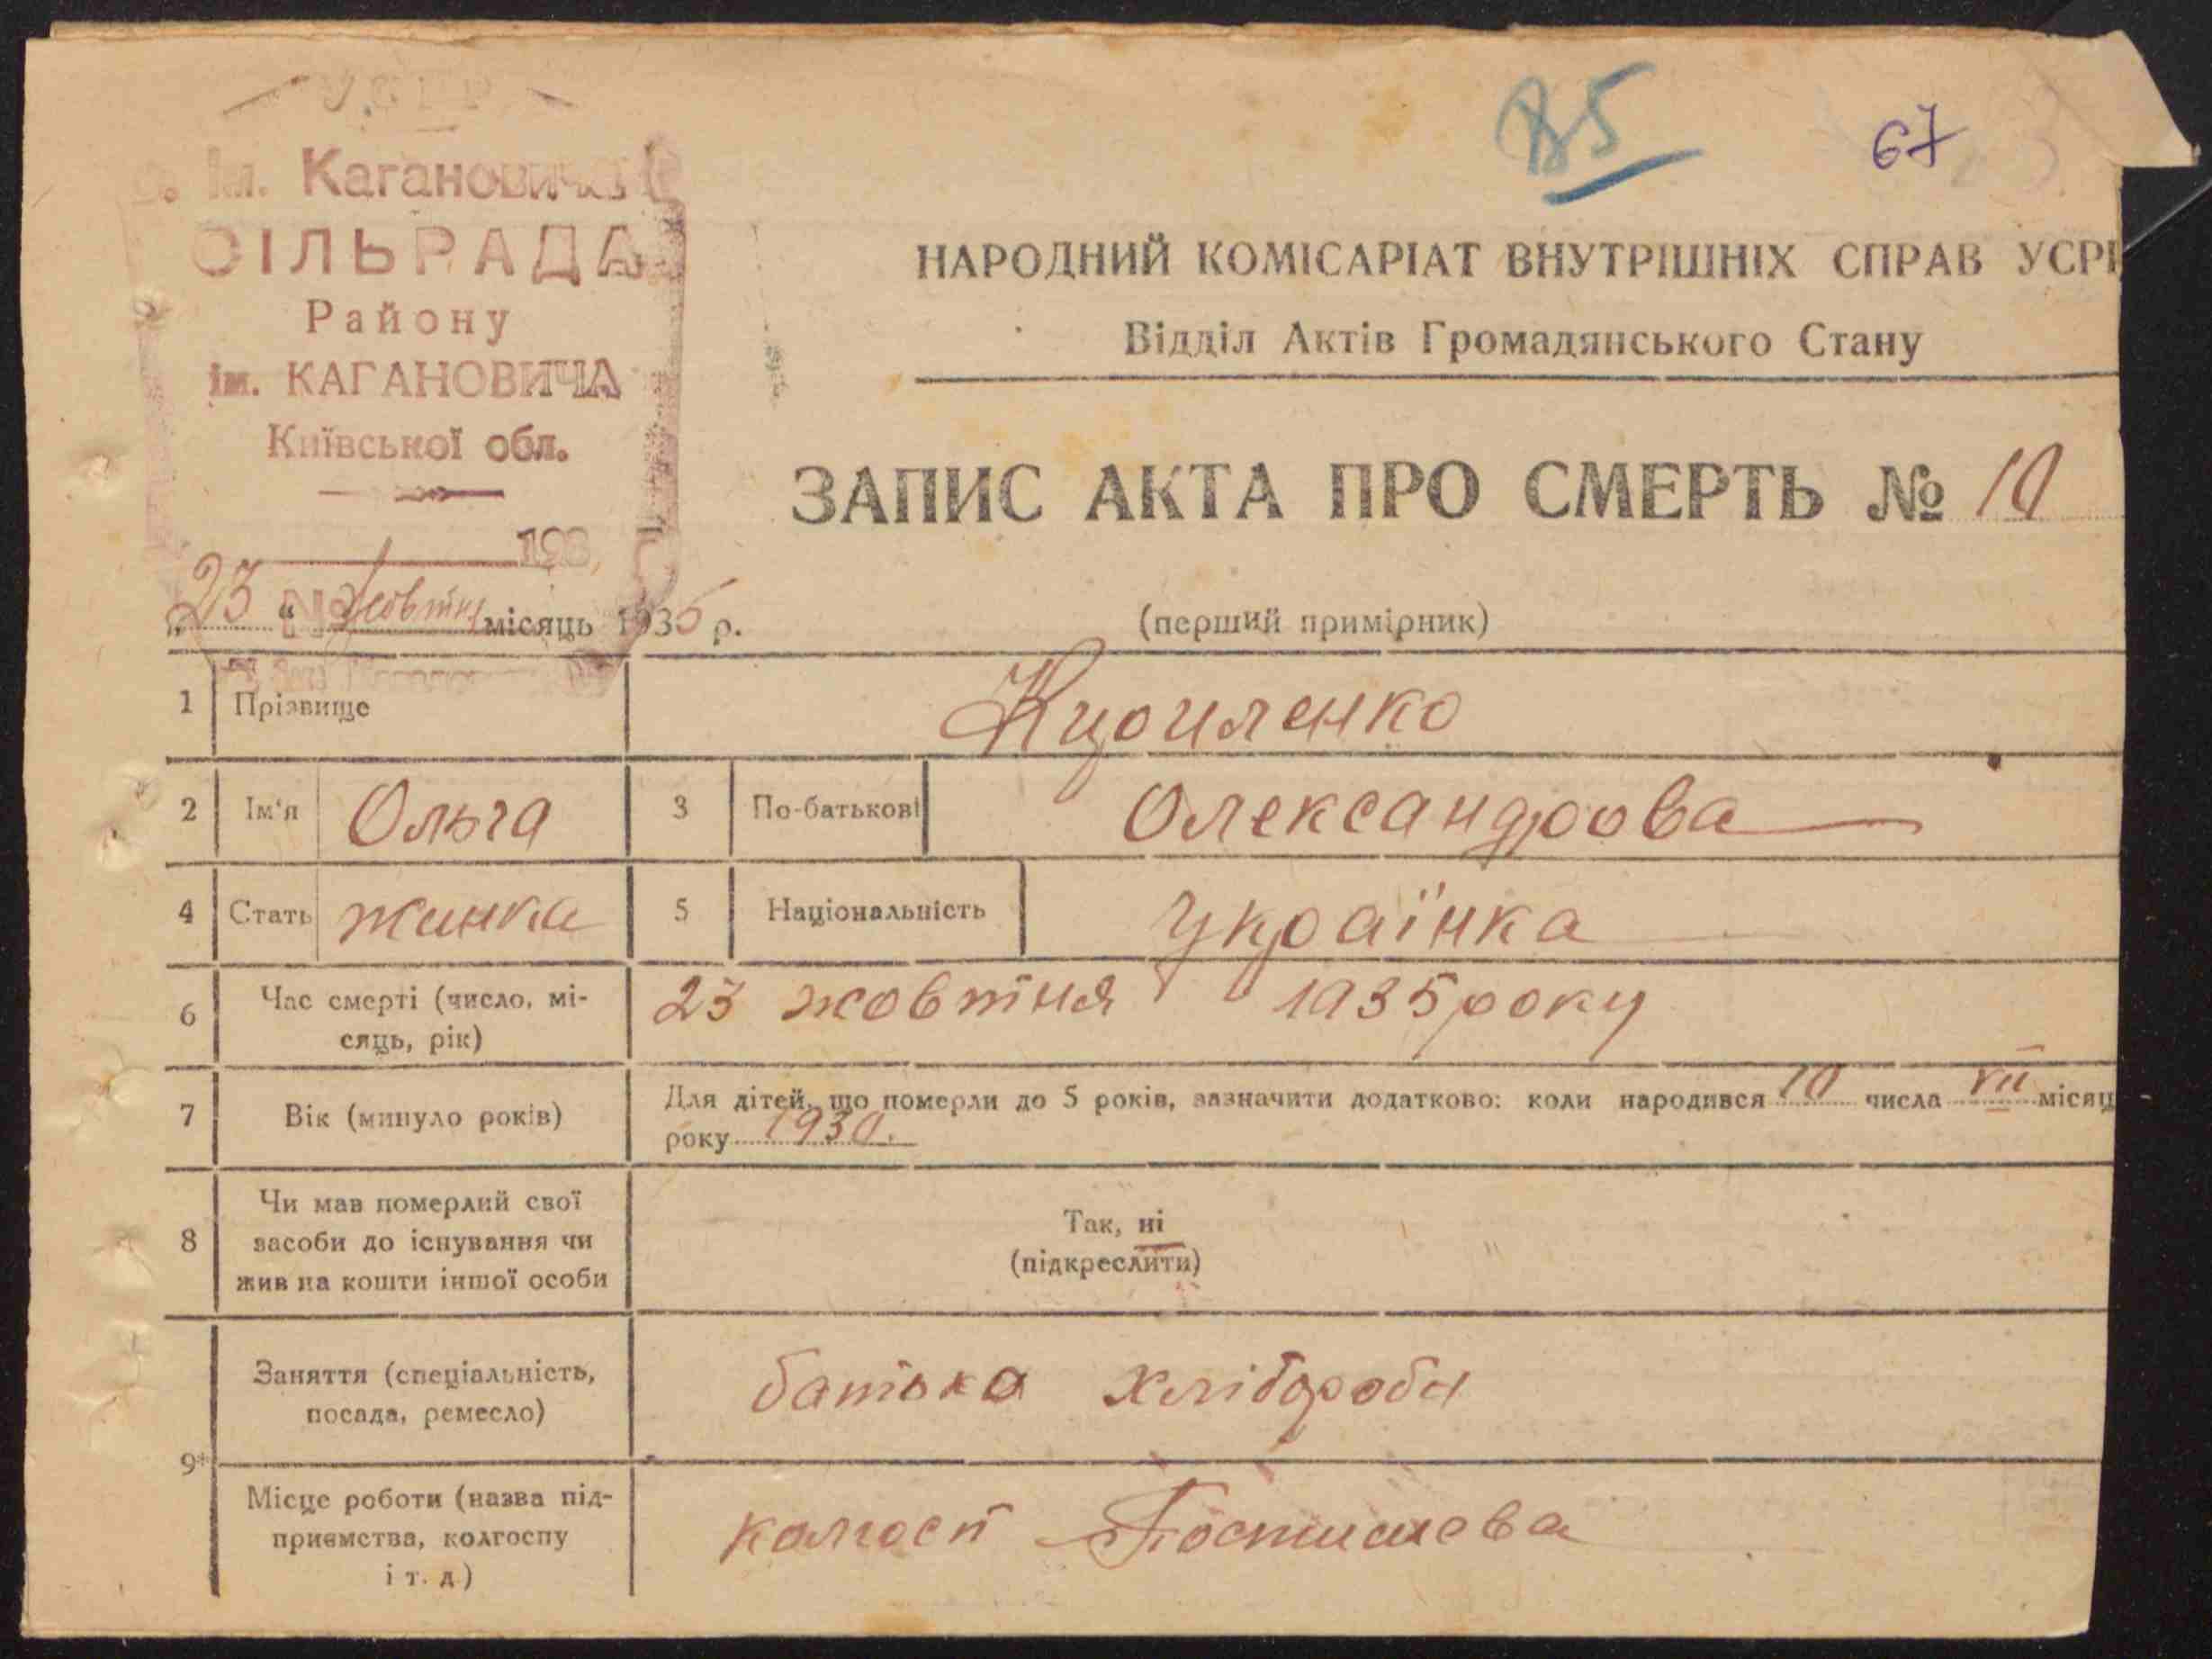 УСРР
с. ім. Кагановича
СІЛЬРАДА
Району
ім. КАГАНОВИЧА
Київської обл.
193
№
85
67
НАРОДНИЙ КОМІСАРІАТ ВНУТРІШНІХ СПРАВ УСРР
Відділ Актів Громадянського Стану
ЗАПИС АКТА ПРО СМЕРТЬ № 10
„23“ Жовтня місяць 1935 р.
(перший примірник)
1 Прізвище Кириленко
2 Ім‘я Ольга 3 По-батькові Олександрова
4 Стать жинка 5 Національність Українка
6 Час смерті (число, мі-
сяць, рік) 23 жовтня 1935 року
7 Вік (минуло років) Для дітей, що померли до 5 років, зазначити додатково: коли народився 10 числа VII місяц
року 1930.
8 Чи мав померлий свої
засоби до існування чи
жив на кошти іншої особи
Так, ні
(підкреслити)
9* Заняття (спеціальність,
посада, ремесло) батька хлібороби
Місце роботи (назва під-
приємства, колгоспу
і т. д.) колгосп Постишева